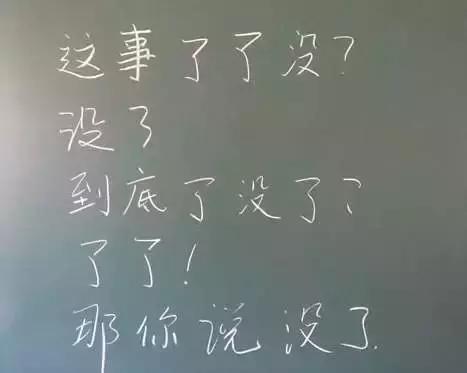 这事了了没？
没了
到底了没了？
了了！
那你说没了.